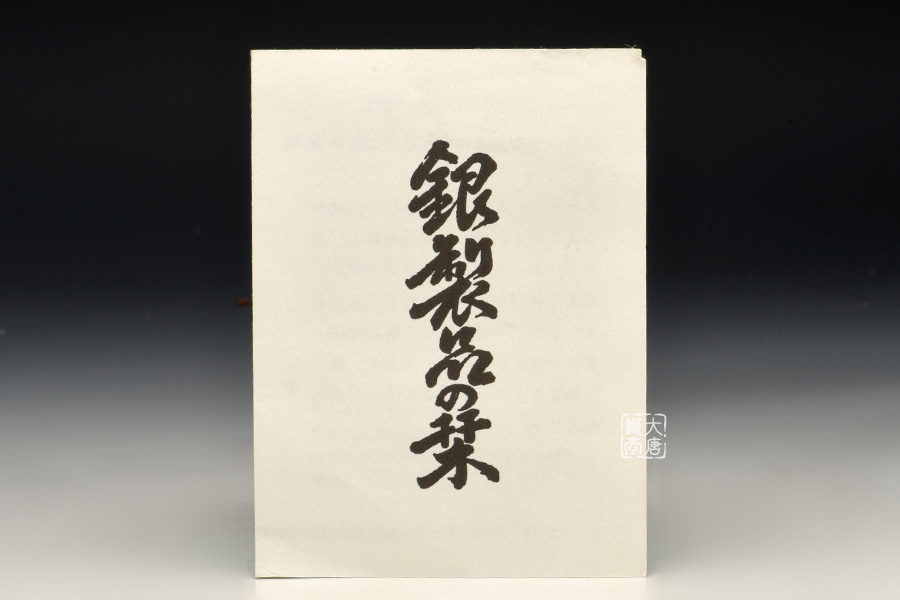 銀製品の栞
大唐
鐵商